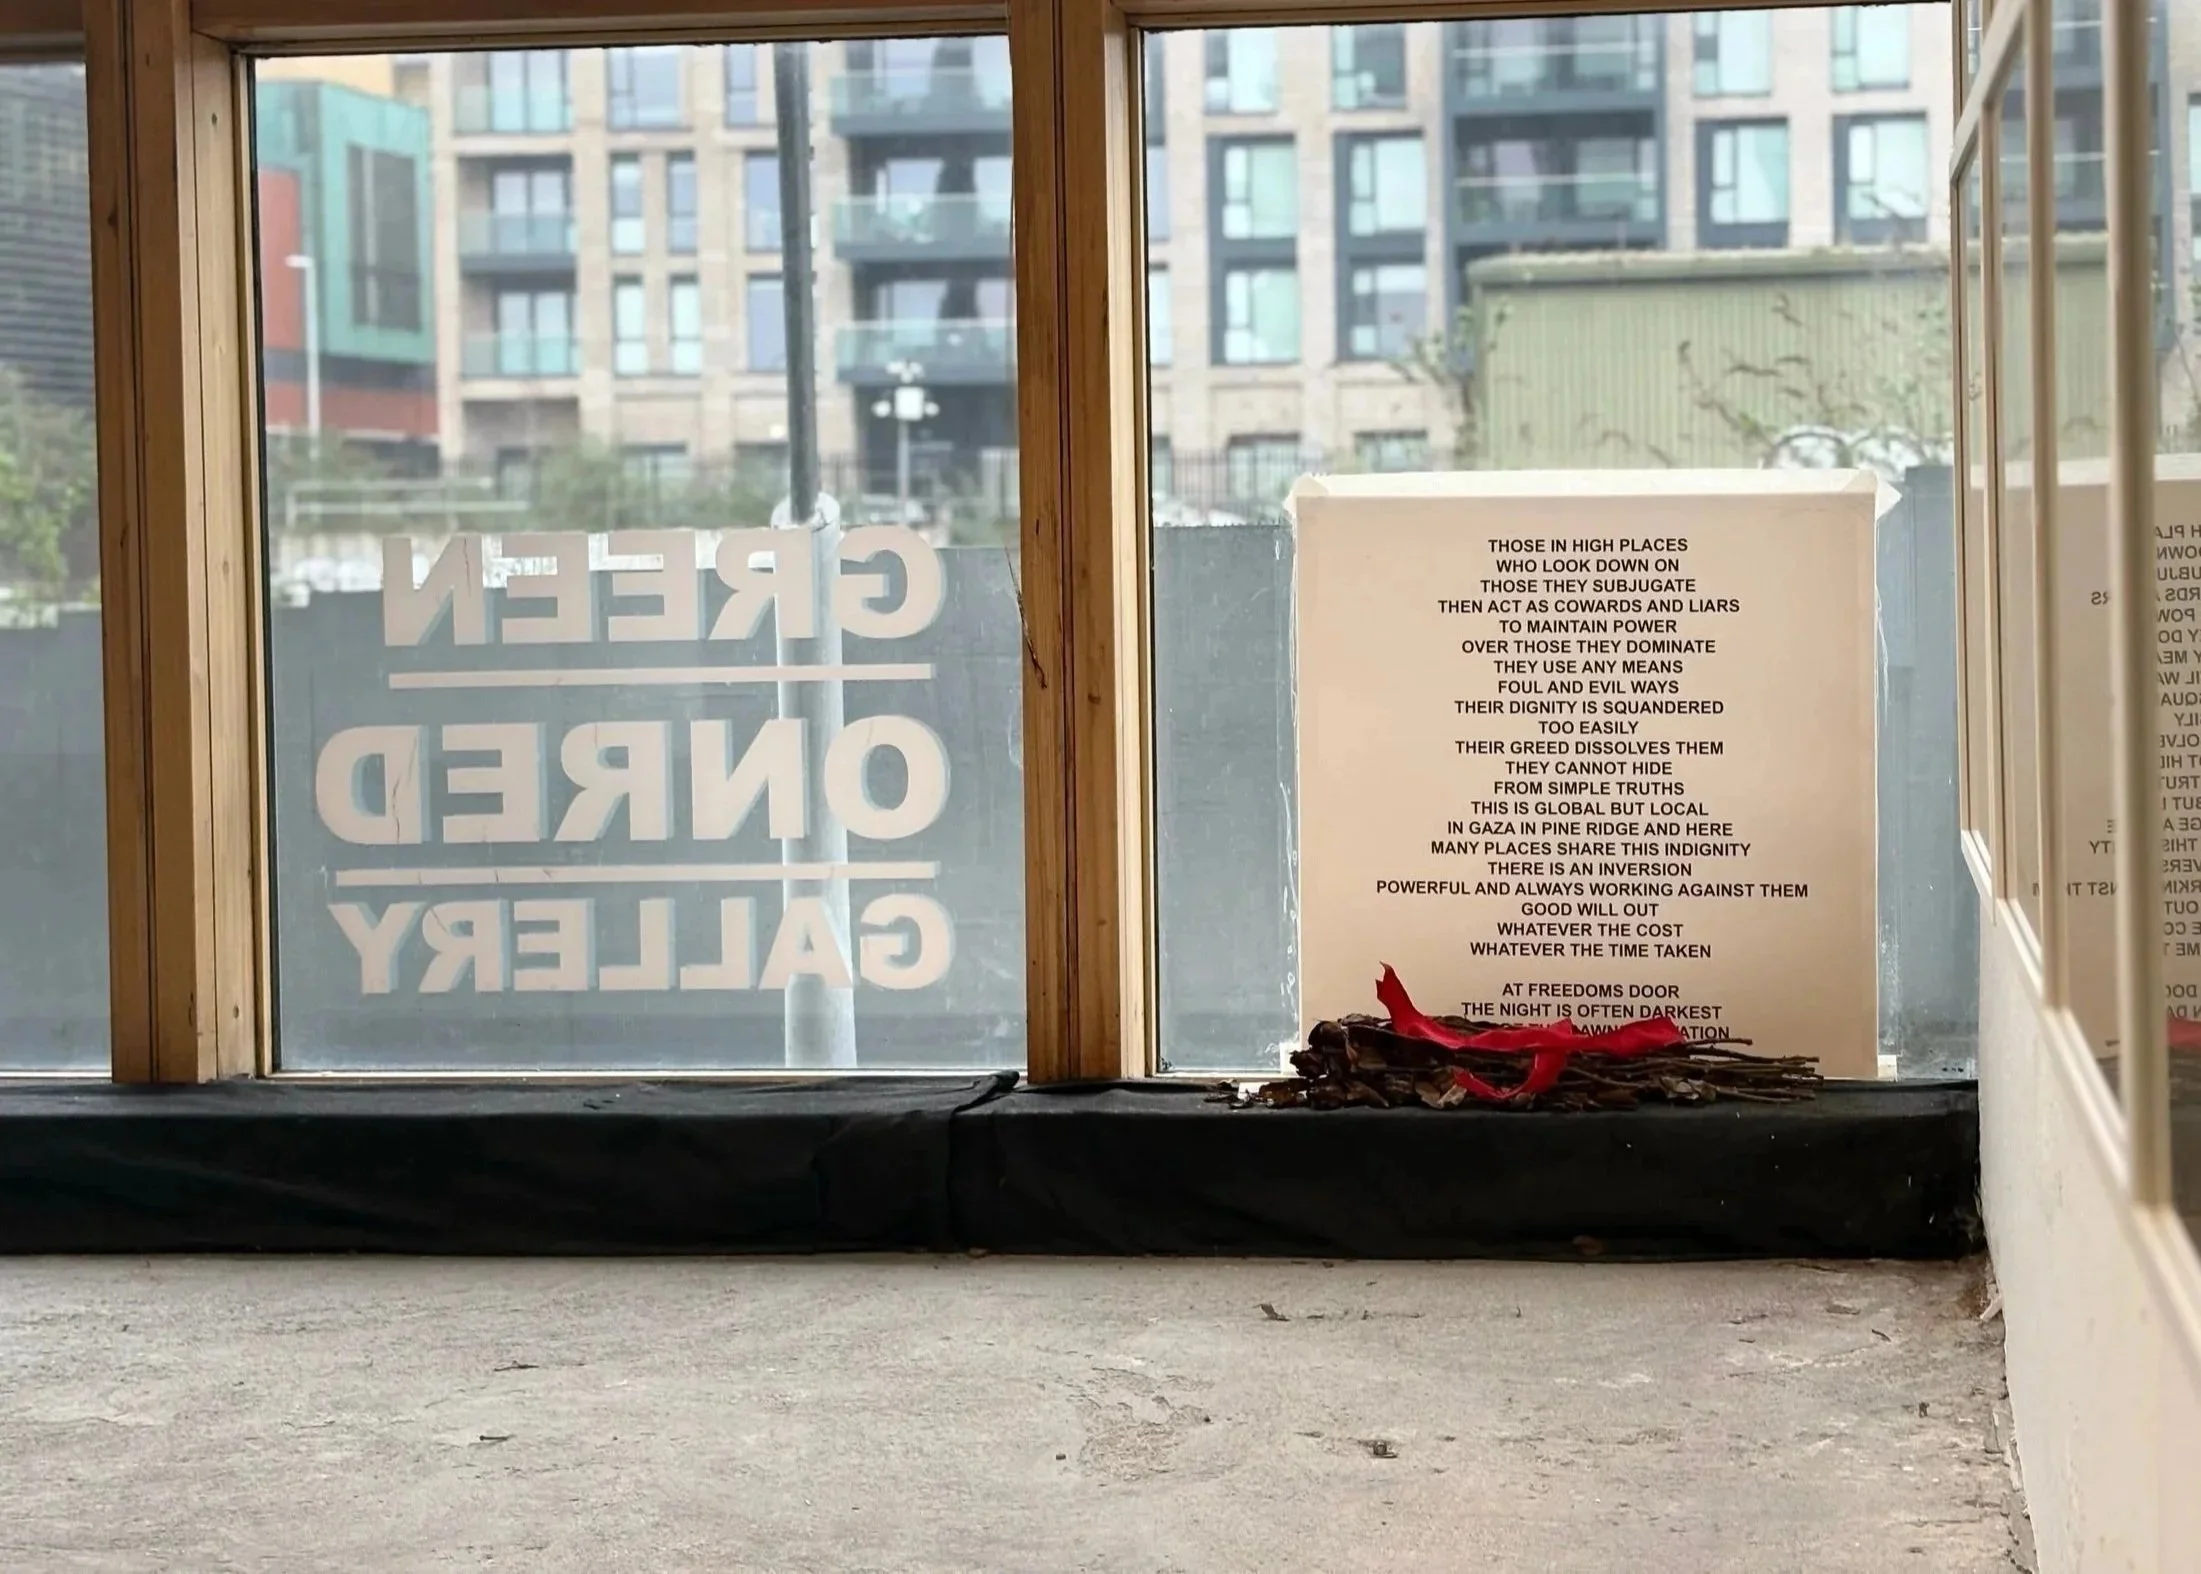 GREEN
ONRED
GALLERY
THOSE IN HIGH PLACES
WHO LOOK DOWN ON
THOSE THEY SUBJUGATE
THEN ACT AS COWARDS AND LIARS
TO MAINTAIN POWER
OVER THOSE THEY DOMINATE
THEY USE ANY MEANS
FOUL AND EVIL WAYS
THEIR DIGNITY IS SQUANDERED
TOO EASILY
THEIR GREED DISSOLVES THEM
THEY CANNOT HIDE
FROM SIMPLE TRUTHS
THIS IS GLOBAL BUT LOCAL
IN GAZA IN PINE RIDGE AND HERE
MANY PLACES SHARE THIS INDIGNITY
THERE IS AN INVERSION
POWERFUL AND ALWAYS WORKING AGAINST THEM
GOOD WILL OUT
WHATEVER THE COST
WHATEVER THE TIME TAKEN
AT FREEDOMS DOOR
THE NIGHT IS OFTEN DARKEST